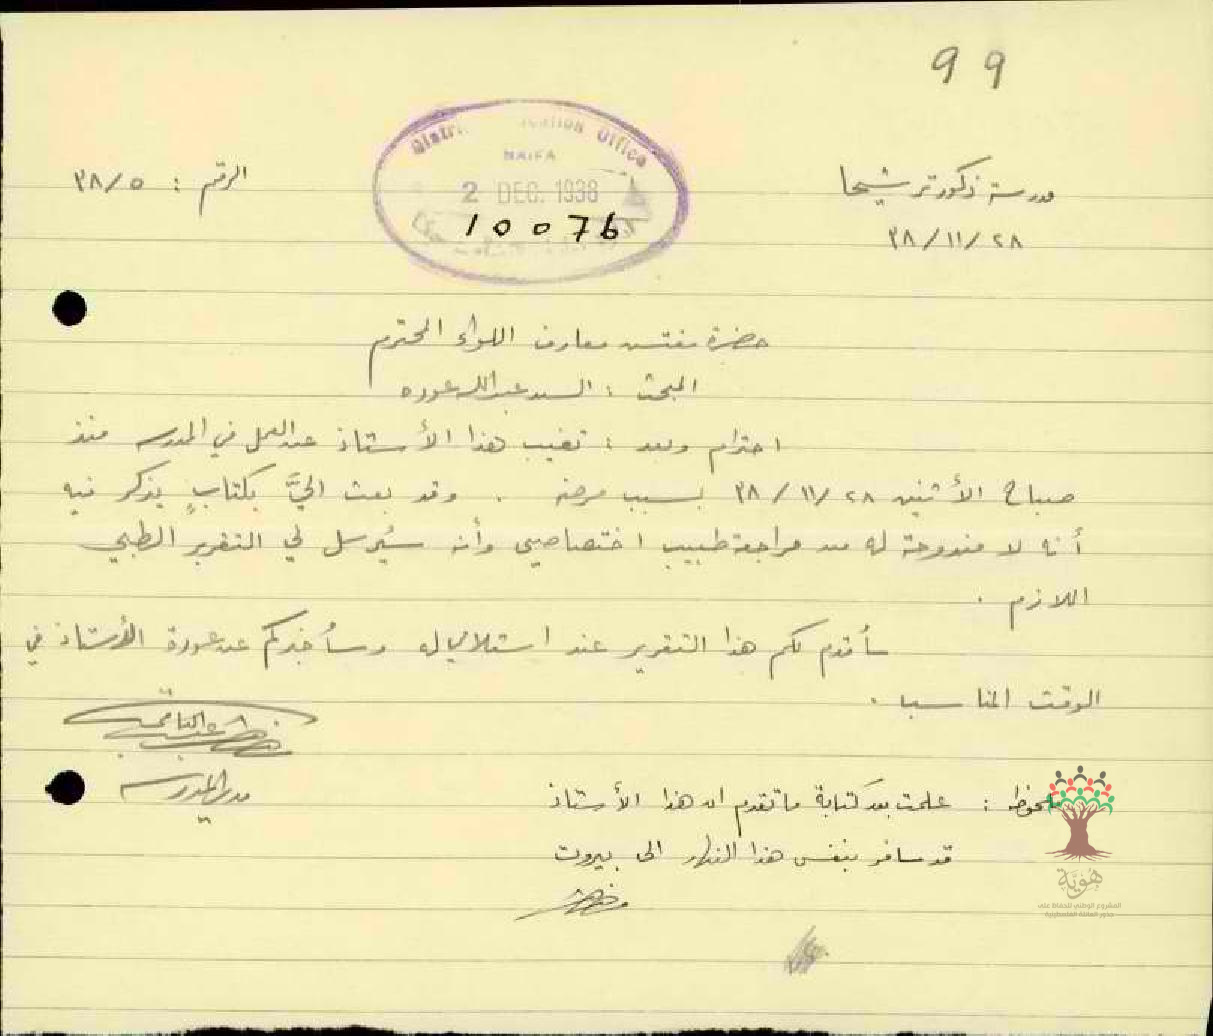 99
District Education Office
HAIFA
2 DEC. 1938
10076
مدرسة ذكور ترشيحا
٢٨/١١/٣٨
الرقم : ٣٨/٥
حضرة مفتش معارف اللواء المحترم
المبحث : السيد عبدالله عوده
احترام وبعد : تغيب هذا الأستاذ عن العمل في المدرسة منذ
صباح الأثنين ٢٨/١١/٣٨ بسبب مرضه . وقد بعث اليَّ بكتابٍ يذكر فيه
أنه لا مندوحة له من مراجعة طبيب اختصاصي وأنه سيُرسل لي التقرير الطبي
اللازم .
سأقدم لكم هذا التقرير عند استلامي له وسأخبركم عن عودة الأستاذ في
الوقت المناسب .
مدير المدرسة
ملحوظة : علمت بعد كتابة ما تقدم ان هذا الأستاذ
قد سافر بنفس هذا النهار الى بيروت
هُويَّة
المشروع الوطني للحفاظ على
جذور العائلة الفلسطينية